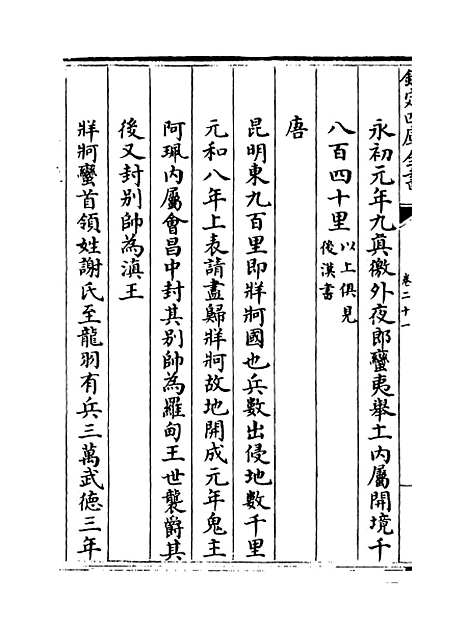 欽定四庫全書
卷二十一
永初元年九真徼外夜郎蠻夷舉土內屬開境千
八百四十里以上俱見
後漢書
唐
昆明東九百里即牂牁國也兵數出侵地數千里
元和八年上表請盡歸牂牁故地開成元年鬼主
阿珮內屬會昌中封其别帥為羅甸王世襲爵其
後又封别帥為滇王
牂牁蠻首領姓謝氏至龍羽有兵三萬武德三年